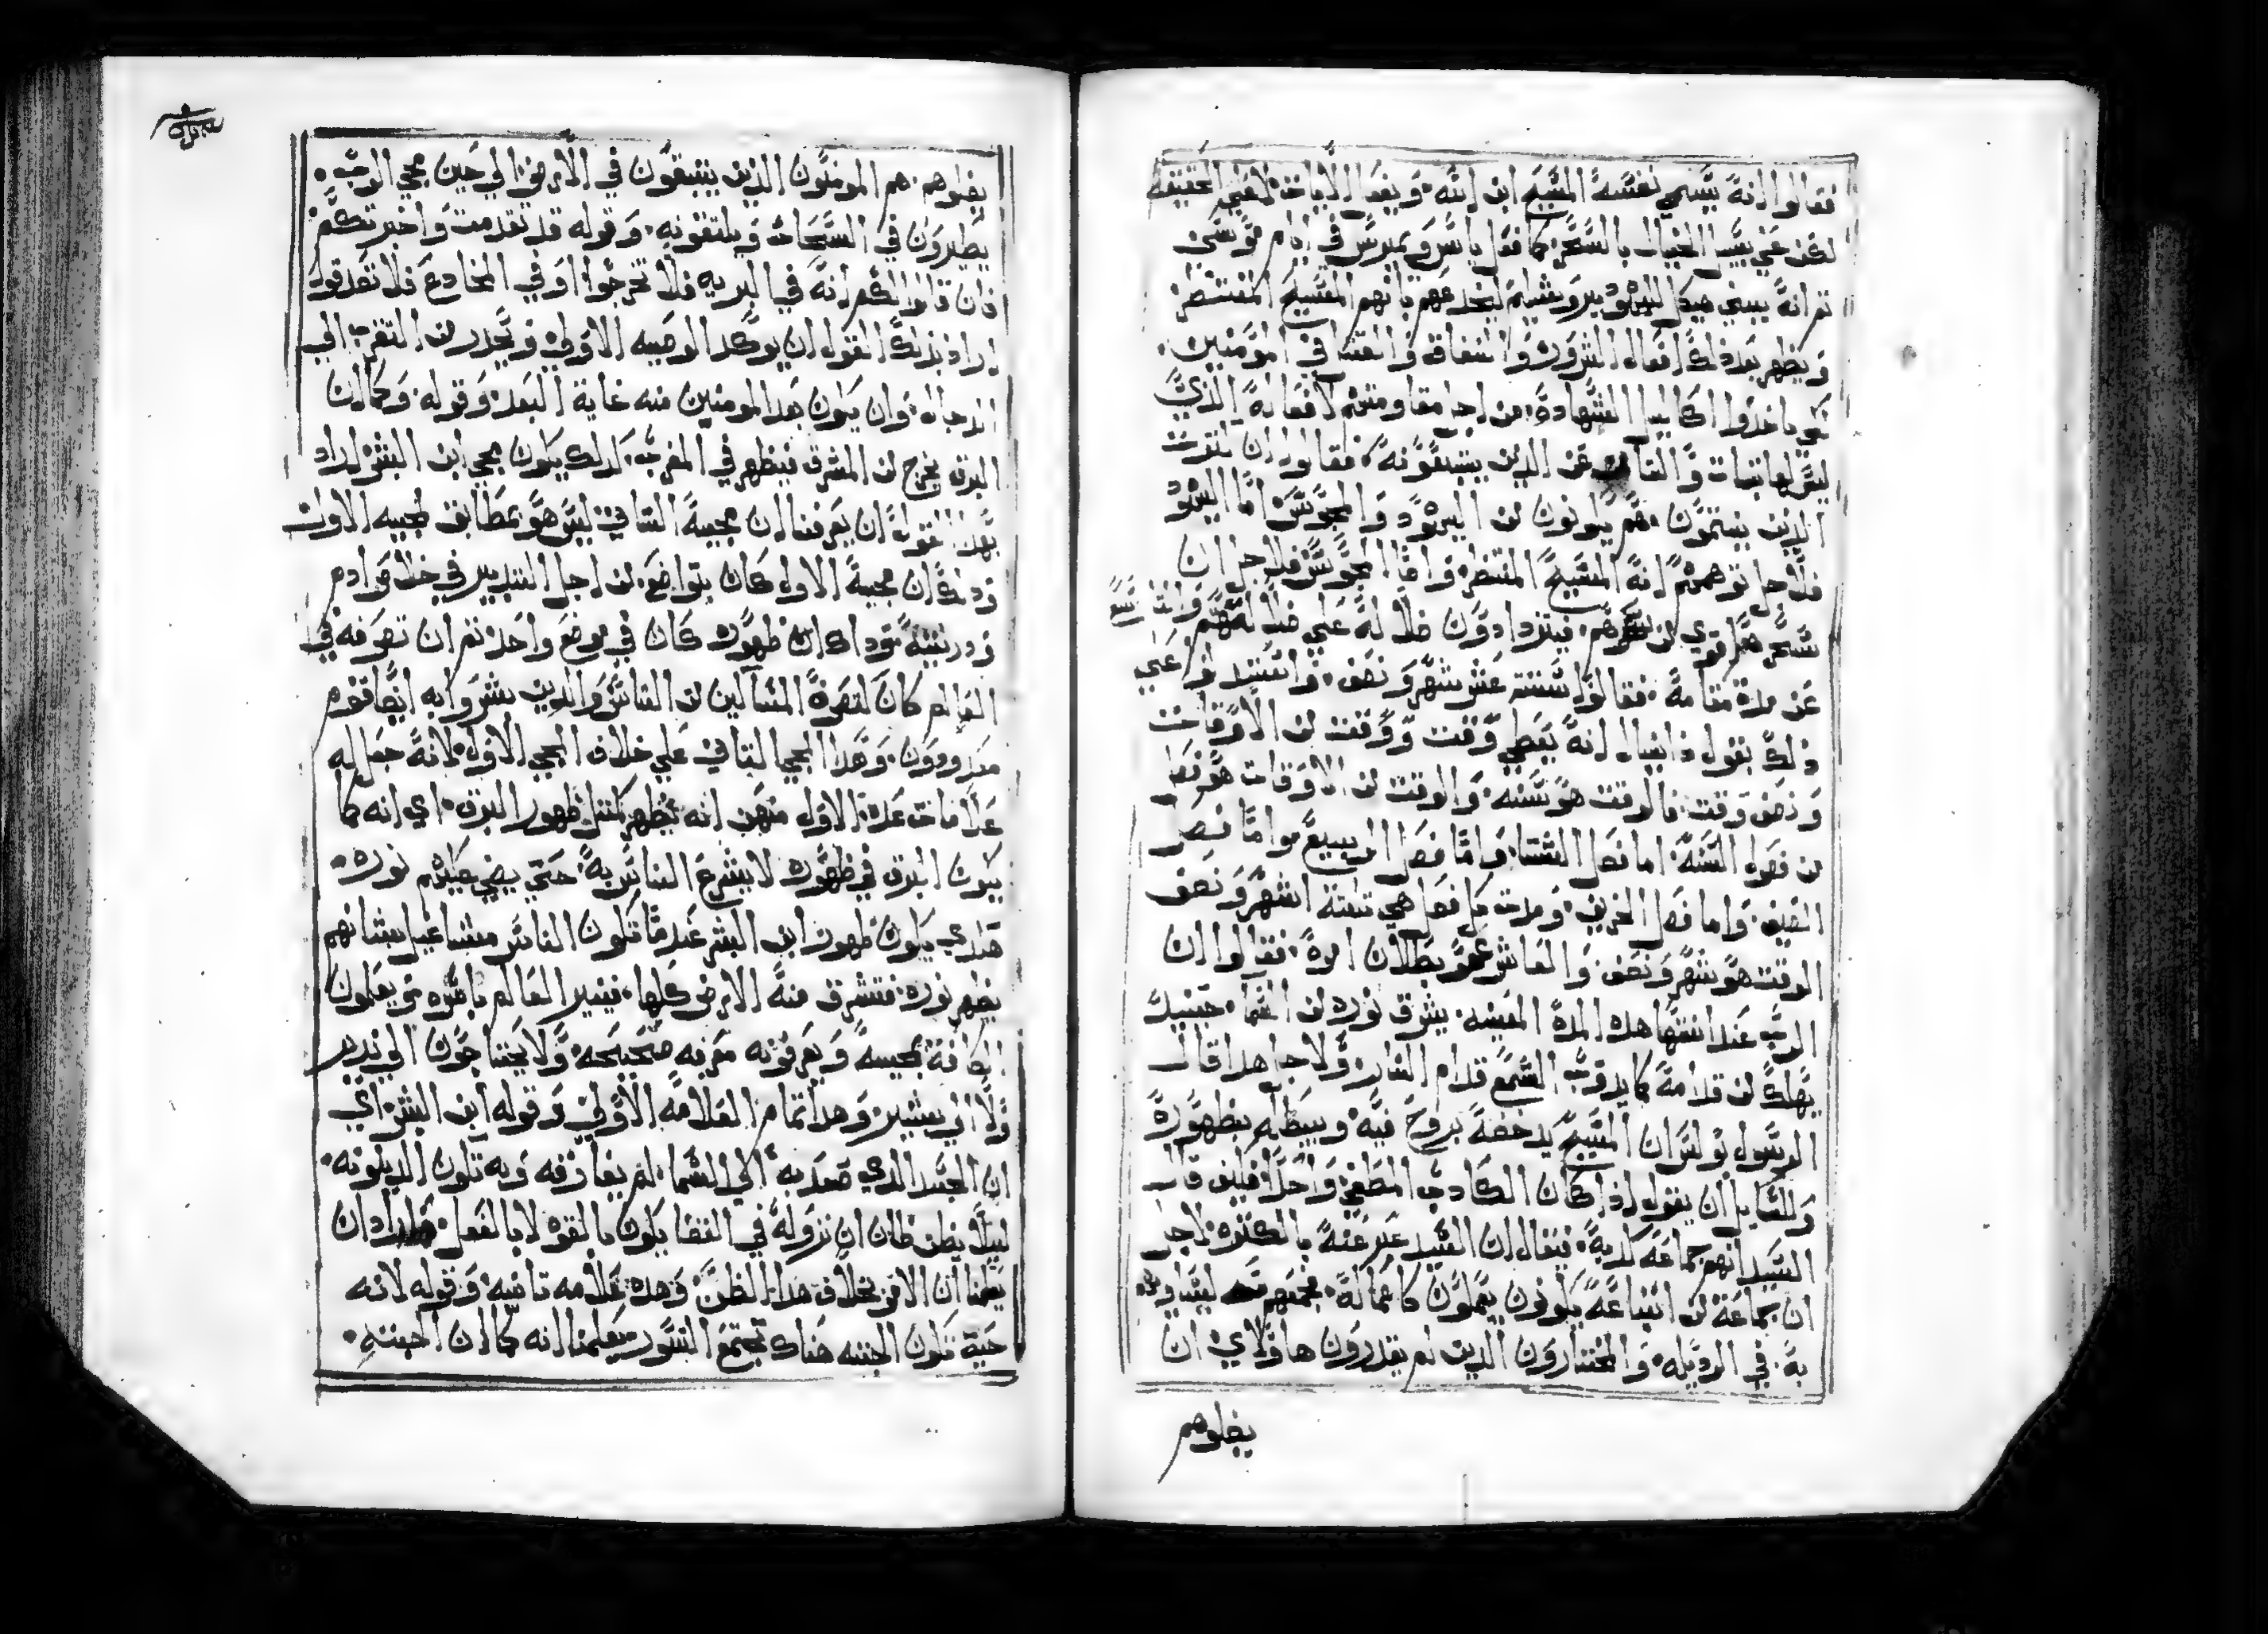 فقالوا انه يسمي نفسه المسيح ابن الله ويفعل الايات لا علي الحقيقه
لكن علي سبيل الخيال بالسحر كما فعل ياناس ويمبراس في ايام موسي
ثم انه يبني هيكل اليهود بيروشليم ليخدعهم بانه المسيح المنتظر
ويظهر بعد ذلك افعال الشرور والنفاق والفتك في المومنين
كي ياخدوا اكاليل الشهادة من اجل مقاومتهم لافعاله الذي
ليس لها تبات والتا عن الدين يتبعونه فقالوا ان اكثرت
الدين يتبعون هم يكونون من اليهود والمجوس اما اليهود
فلاجل توهمهم انه المسيح المنتظر واما المجوس فلاجل ان
سحره اقوي من سحرهم فيزدادون ضلاله علي ضلالتهم وانت تسع
عن مدة مقامه فقالوا ستة عشر شهر ونصف واستندلوا علي
ذلك بقول دانيال انه يعطي وقت ووقت من الاوقات
ونصف وقت فالوقت هو سنه والوقت من الاوقات هو فصل
من فصول السنه اما فصل الشتا واما فصل الربيع واما فصل
الصيف واما فصل الخريف ومدت كل فصل هي تلتة اشهر ونصف
الوقت هو شهر ونصف والعاشر هو بطلان امره فقالوا ان
الرب عند انتها هده المدة المعينه يشرق نوره من السما حينيد
يهلك من قدامه كما يدوب الشمع قدام النار ولاجل هدا قال
الرسول بولس ان المسيح يدحضه بروح فيه ويبطله بظهوره
ولقايل ان يقول اذا كان الكاذب المطغي واحد فكيف قال
السيد انهم جماعة كدبة فيقال ان السيد عبر عنه بالكتره لاجل
ان جماعة من اتباعه يكونون يعملون كاعماله فجمعهم معه ليساووه
به في الرديله والمختارون الدين لم يقدرون هاولاي ان
يضلوهم
يضلوهم هم المومنون الذين يتبقون في الارض الي حين مجي الرب
يطيرون في السحاب ويلتقونه وقوله قد تقدمت واخبرتكم
فان قالوا لكم انه في البريه فلا تخرجوا او في المخادع فلا تصدقوا
اراد بدلك القول ان يوكد الوصيه الاولي ويحدر من التقرب الي
الدجال وان يكون بعد المومنين منه غاية البعد وقوله وكما ان
البرق يخرج من المشرق فيظهر في المغرب كدلك يكون مجي ابن البشر اراد
بهدا القول ان يعرفنا ان مجيه التاني ليس هو بمطابق لمجيه الاول
ودلك ان مجيه الاول كان بتواضع من اجل التدبير في خلاص ادم
ودريته ودا كان ظهوره كان في موضع واحد تم ان تصرفه في
العالم كان لتصرف المسالين من الناس والدين بشروا به ايضا قوم
معدودون وهدا المجي التاني علي خلاف المجي الاول لانه جعل له
علامات عدة الاول منهن انه يظهر كمتل ظهور البرق اي انه كما
يكون البرق في ظهوره لا يشعر الناس به حتي يضي عليهم نوره
هكدي يكون ظهور ابن البشر عندما تكون الناس متشاغلين بشانهم
يظهر نوره فتشرق منه الارض كلها فينير العالم باسره كي يعلمون
الكافة بمجيه ويعرفونه معرفه صحيحه ولا يحتاجون الي ندير
ولا الي بشير وهدا تمام العلامه الاولي وقوله ابن البشر اي
ان الجسد الدي صعد به الي السما لم يفارقه وبه تكون الدينونه
ليلا يظن ظان ان نزوله في القضا يكون بالقوه لا بالفعل فاراد ان
يعلمنا ان الامر بخلاف هدا الظن وهده علامه تانيه وقوله لانه
حيت تكون الجتته هناك تجتمع النسور يعلمنا انه كما ان الجتته